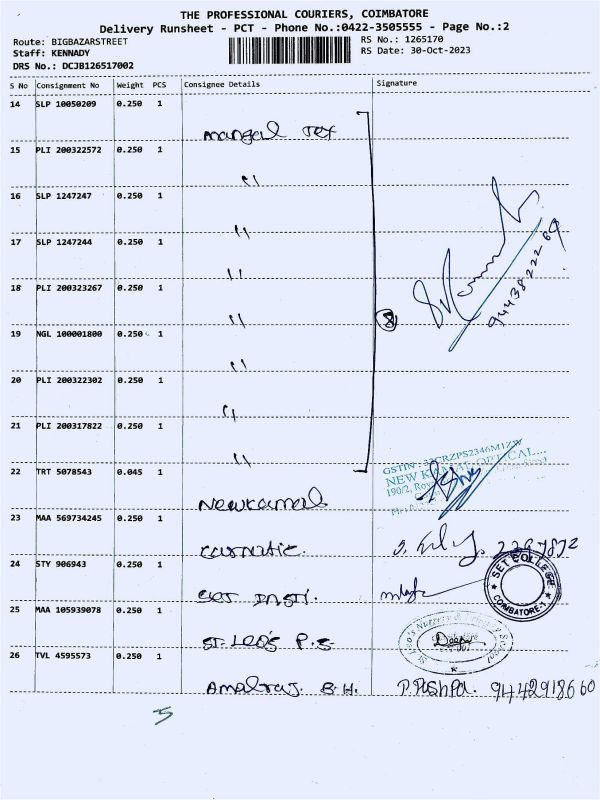 THE PROFESSIONAL COURIERS, COIMBATORE
Delivery Runsheet - PCT - Phone No.:0422-3505555 - Page No.:2
Route: BIGBAZARSTREET
Staff: KENNADY
DRS No.: DCJB126517002
RS No.: 1265170
RS Date: 30-Oct-2023
S No Consignment No Weight PCS Consignee Details Signature
14 SLP 10050209 0.250 1
mangal Tex
15 PLI 200322572 0.250 1
"
16 SLP 1247247 0.250 1
"
17 SLP 1247244 0.250 1
"
18 PLI 200323267 0.250 1
"
19 NGL 100001800 0.250 1
"
20 PLI 200322302 0.250 1
"
21 PLI 200317822 0.250 1
"
8
22 TRT 5078543 0.045 1
Newkamal
GSTIN : 33CRZPS2346M1ZW
NEW KAMAL OPTICAL...
190/2,
23 MAA 569734245 0.250 1
carnatic.
24 STY 906943 0.250 1
SET COLLEGE
COIMBATORE-1
25 MAA 105939078 0.250 1
ST. LEO'S P.S
St. Leo's Nursery & Primary School
26 TVL 4595573 0.250 1
Amalraj. B.H. P. Pushpa. 9442918660